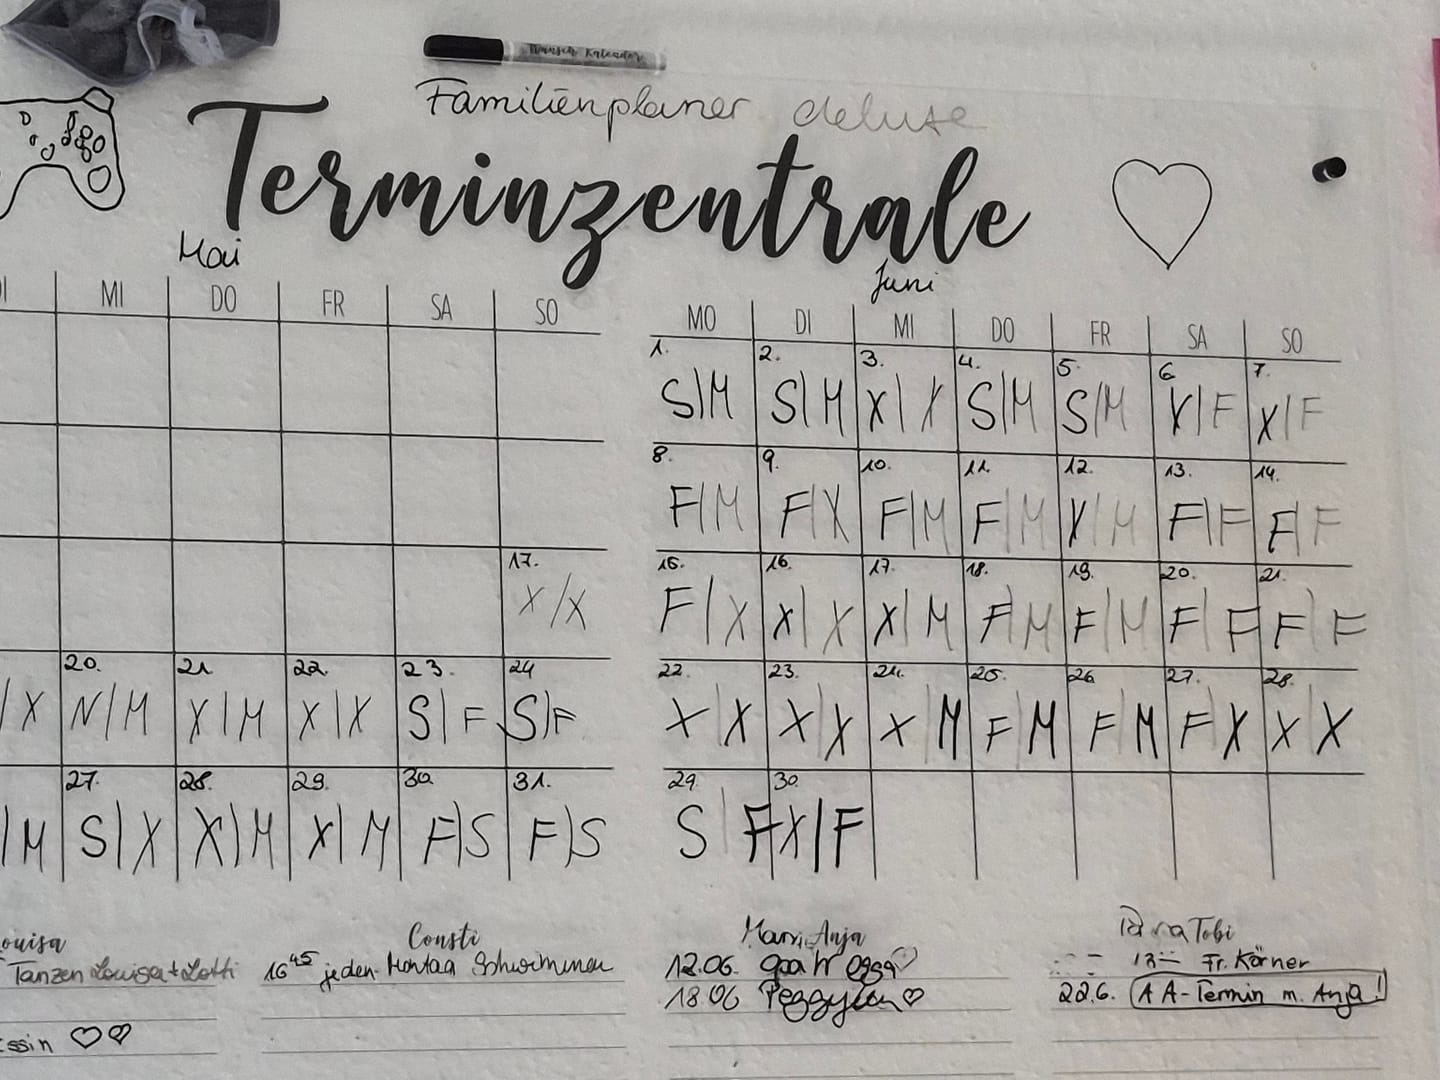 Familienplaner deluxe
Terminzentrale
Mai
Juni
MI DO FR SA SO
MO DI MI DO FR SA SO
1. 2. 3. 4. 5. 6 7.
S|M S|M X|X S|M S|M X|F X|F
8. 9. 10. 11. 12. 13. 14.
F|M F|X F|M F|M X|M F|F F|F
17.
X/X
15. 16. 17. 18. 19. 20. 21.
F|X X|X X|M F|M F|M F|F F|F
20. 21 22. 23. 24
|X N|M X|M X|X S|F S|F
22. 23. 24. 25. 26 27. 28.
X|X X|X X|M F|M F|M F|X X|X
27. 28. 29. 30 31.
|M S|X X|M X|M F|S F|S
29. 30.
S|F X|F
ouisa
Tanzen Louisa + Lotti
ssin
Consti
16 45 jeden Montag Schwimmen
Anja
12.06.
18.06
Tobi
Fr. Körner
22.6. AA-Termin m. Anja!